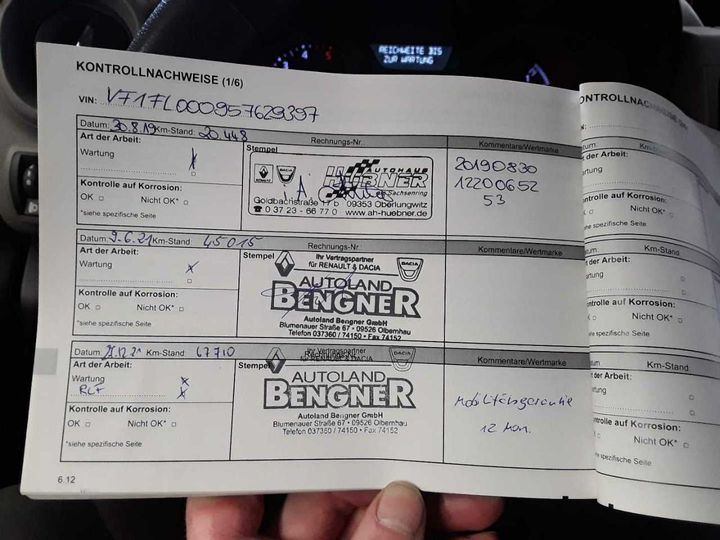 REICHWEITE BIS
ZUR WARTUNG
KONTROLLNACHWEISE (1/6)
VIN: VF17L000957629397
Datum: 30.8.19 Km-Stand: 20.448 Rechnungs-Nr. Kommentare/Wertmarke
Art der Arbeit: Stempel
Wartung x
Kontrolle auf Korrosion:
OK Nicht OK*
*siehe spezifische Seite
RENAULT DACIA AUTOHAUS
HÜBNER
Sachsenring
Goldbachstraße 17 b 09353 Oberlungwitz
0 37 23 - 66 77 0 www.ah-huebner.de
20190830
12200652
53
Datum: 9.6.21 Km-Stand: 45015 Rechnungs-Nr. Kommentare/Wertmarke
Art der Arbeit: Stempel
Wartung x
Kontrolle auf Korrosion:
OK Nicht OK*
*siehe spezifische Seite
Ihr Vertragspartner
für RENAULT & DACIA
DACIA
AUTOLAND
BENGNER
Autoland Bengner GmbH
Blumenauer Straße 67 • 09526 Olbernhau
Telefon 037360 / 74150 • Fax 74152
Datum: 28.12.21 Km-Stand: 67710 Kommentare/Wertmarke
Art der Arbeit: Stempel
Wartung x
RLF x
Kontrolle auf Korrosion:
OK Nicht OK*
*siehe spezifische Seite
Ihr Vertragspartner
für RENAULT & DACIA
DACIA
AUTOLAND
BENGNER
Autoland Bengner GmbH
Blumenauer Straße 67 • 09526 Olbernhau
Telefon 037360 / 74150 • Fax 74152
Mobilitätsgarantie
12 Mon.
6.12
ONTROLLNACHWEISE
Km-
Art der Arbeit:
Wartung
Kontrolle auf Korrosion:
OK Nicht OK*
*siehe spezifische Seite
Km-St
Art der Arbeit:
Wartung
Kontrolle auf Korrosion:
Nicht OK*
*siehe spezifische Seite
Km-Stand:
Art der Arbeit:
Wartung
Kontrolle auf Korrosion:
OK Nicht OK*
*siehe spezifische Seite